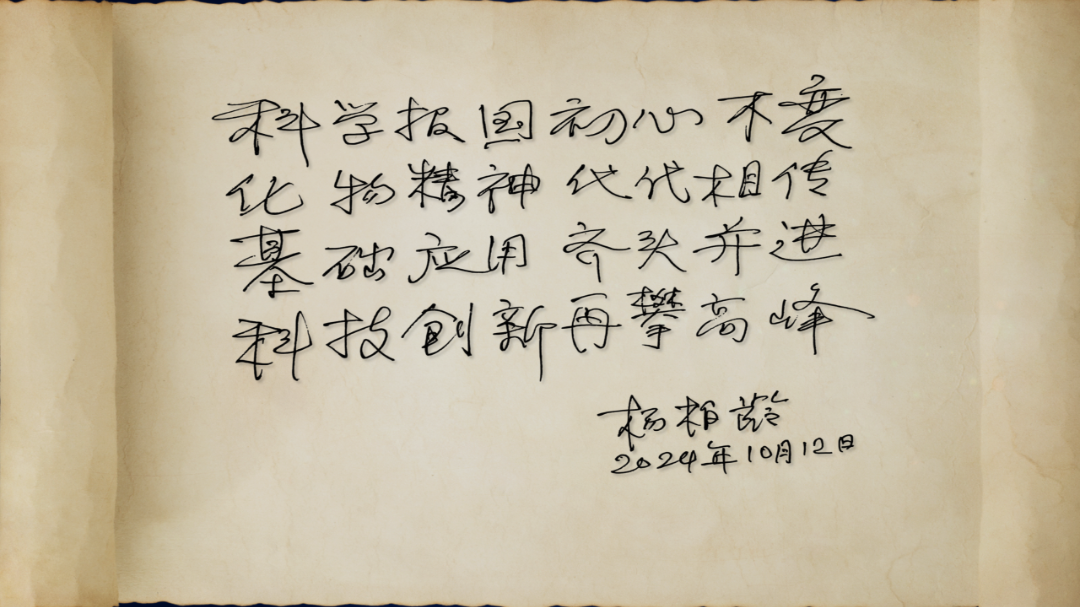 科学报国初心不变
化物精神代代相传
基础应用齐头并进
科技创新再攀高峰
杨柏龄
2024年10月12日